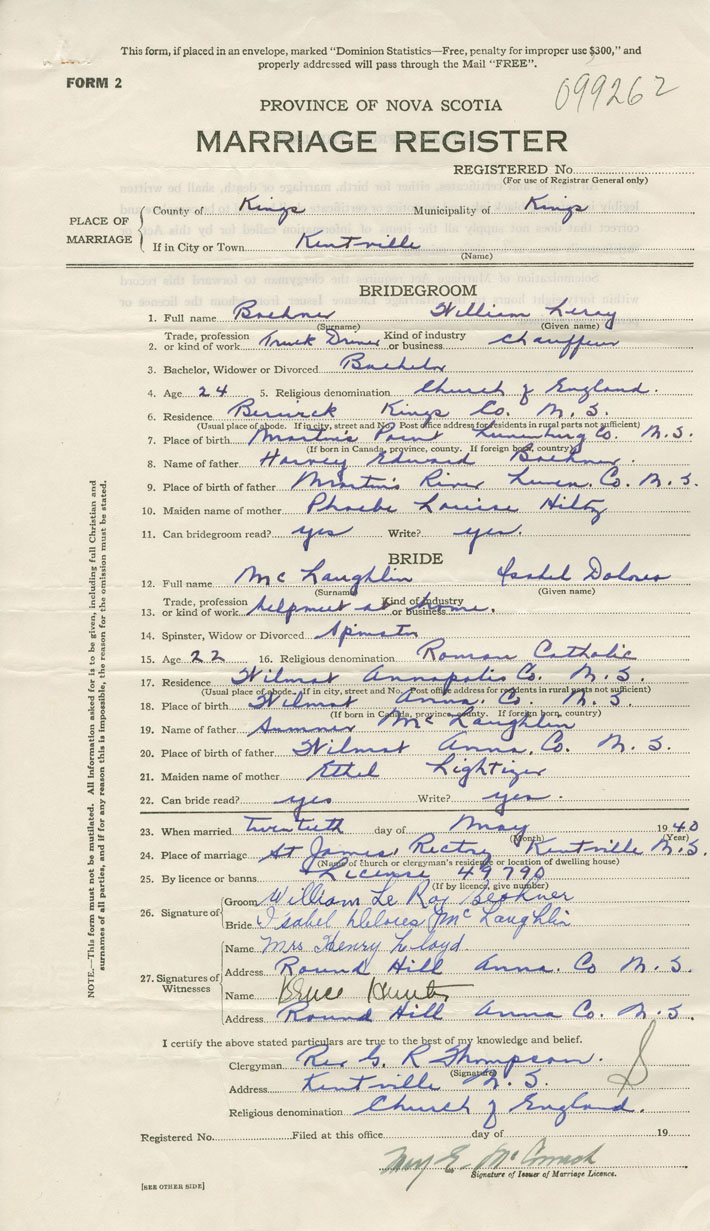 This form, if placed in an envelope, marked "Dominion Statistics—Free, penalty for improper use $300," and
properly addressed will pass through the Mail "FREE".
FORM 2
099262
PROVINCE OF NOVA SCOTIA
MARRIAGE REGISTER
REGISTERED No.
(For use of Registrar General only)
PLACE OF MARRIAGE
County of Kings Municipality of Kings
If in City or Town Kentville
(Name)
BRIDEGROOM
1. Full name Boehner William Leroy
(Surname) (Given name)
2. Trade, profession or kind of work Truck Driver Kind of industry or business Chauffeur
3. Bachelor, Widower or Divorced Bachelor
4. Age 24 5. Religious denomination Church of England.
6. Residence Berwick Kings Co. N. S.
(Usual place of abode. If in city, street and No. Post office address for residents in rural parts not sufficient)
7. Place of birth Martin's Point Lunenburg Co. N. S.
(If born in Canada, province, county. If foreign born, country)
8. Name of father Harvey Edward Boehner.
9. Place of birth of father Martin's River Lunen. Co. N. S.
10. Maiden name of mother Phoebe Louise Hiltz
11. Can bridegroom read? yes Write? yes.
BRIDE
12. Full name McLaughlin Isabel Dolores
(Surname) (Given name)
13. Trade, profession or kind of work Kind of industry or business helpmeet at home.
14. Spinster, Widow or Divorced Spinster
15. Age 22 16. Religious denomination Roman Catholic
17. Residence Wilmot Annapolis Co. N. S.
(Usual place of abode. If in city, street and No. Post office address for residents in rural parts not sufficient)
18. Place of birth Wilmot Anna. Co. N. S.
(If born in Canada, province, county. If foreign born, country)
19. Name of father Sumner McLaughlin
20. Place of birth of father Wilmot Anna. Co. N. S.
21. Maiden name of mother Ethel Lightizer
22. Can bride read? yes Write? yes.
23. When married twentieth day of May 1940
(Month) (Year)
24. Place of marriage St James Rectory Kentville N. S.
(Name of church or clergyman's residence or location of dwelling house)
25. By licence or banns License 49790
(If by licence, give number)
26. Signature of
Groom William Le Roy Boehner
Bride Isabel Delores McLaughlin
27. Signatures of Witnesses
Name Mrs Henry Lloyd
Address Round Hill Anna. Co N. S.
Name Bruce Hunter
Address Round Hill Anna Co. N. S.
I certify the above stated particulars are true to the best of my knowledge and belief.
Clergyman Rev G. R Thompson.
(Signature)
Address Kentville N. S.
Religious denomination Church of England.
Registered No. Filed at this office day of 19
McCormack
Signature of Issuer of Marriage Licence.
[SEE OTHER SIDE]
NOTE.—This form must not be mutilated. All information asked for is to be given, including full Christian and
surnames of all parties, and if for any reason this is impossible, the reason for the omission must be stated.